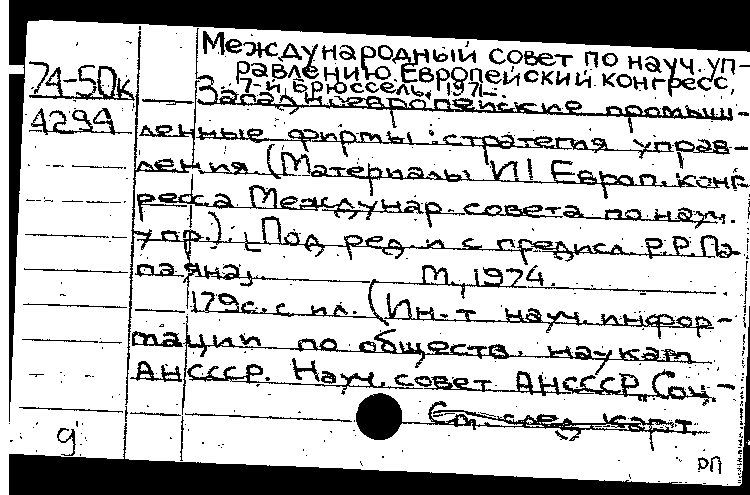 Международный совет по науч. уп-
равлению. Европейский конгресс,
7-й, Брюссель, 197
74-50к
Западноевропейские промыш-
4294
ленные фирмы: стратегия управ-
ления. (Материалы VII Европ. конг-
ресса Междунар. совета по науч.
упр.). [Под ред. и с предисл. Р.Р.Па-
паяна].
М., 1974.
179с. с ил. (Ин-т науч. инфор-
мации по обществ. наукам
АНСССР. Науч. совет АНСССР „Соц.-
См. след. карт.
9
РП